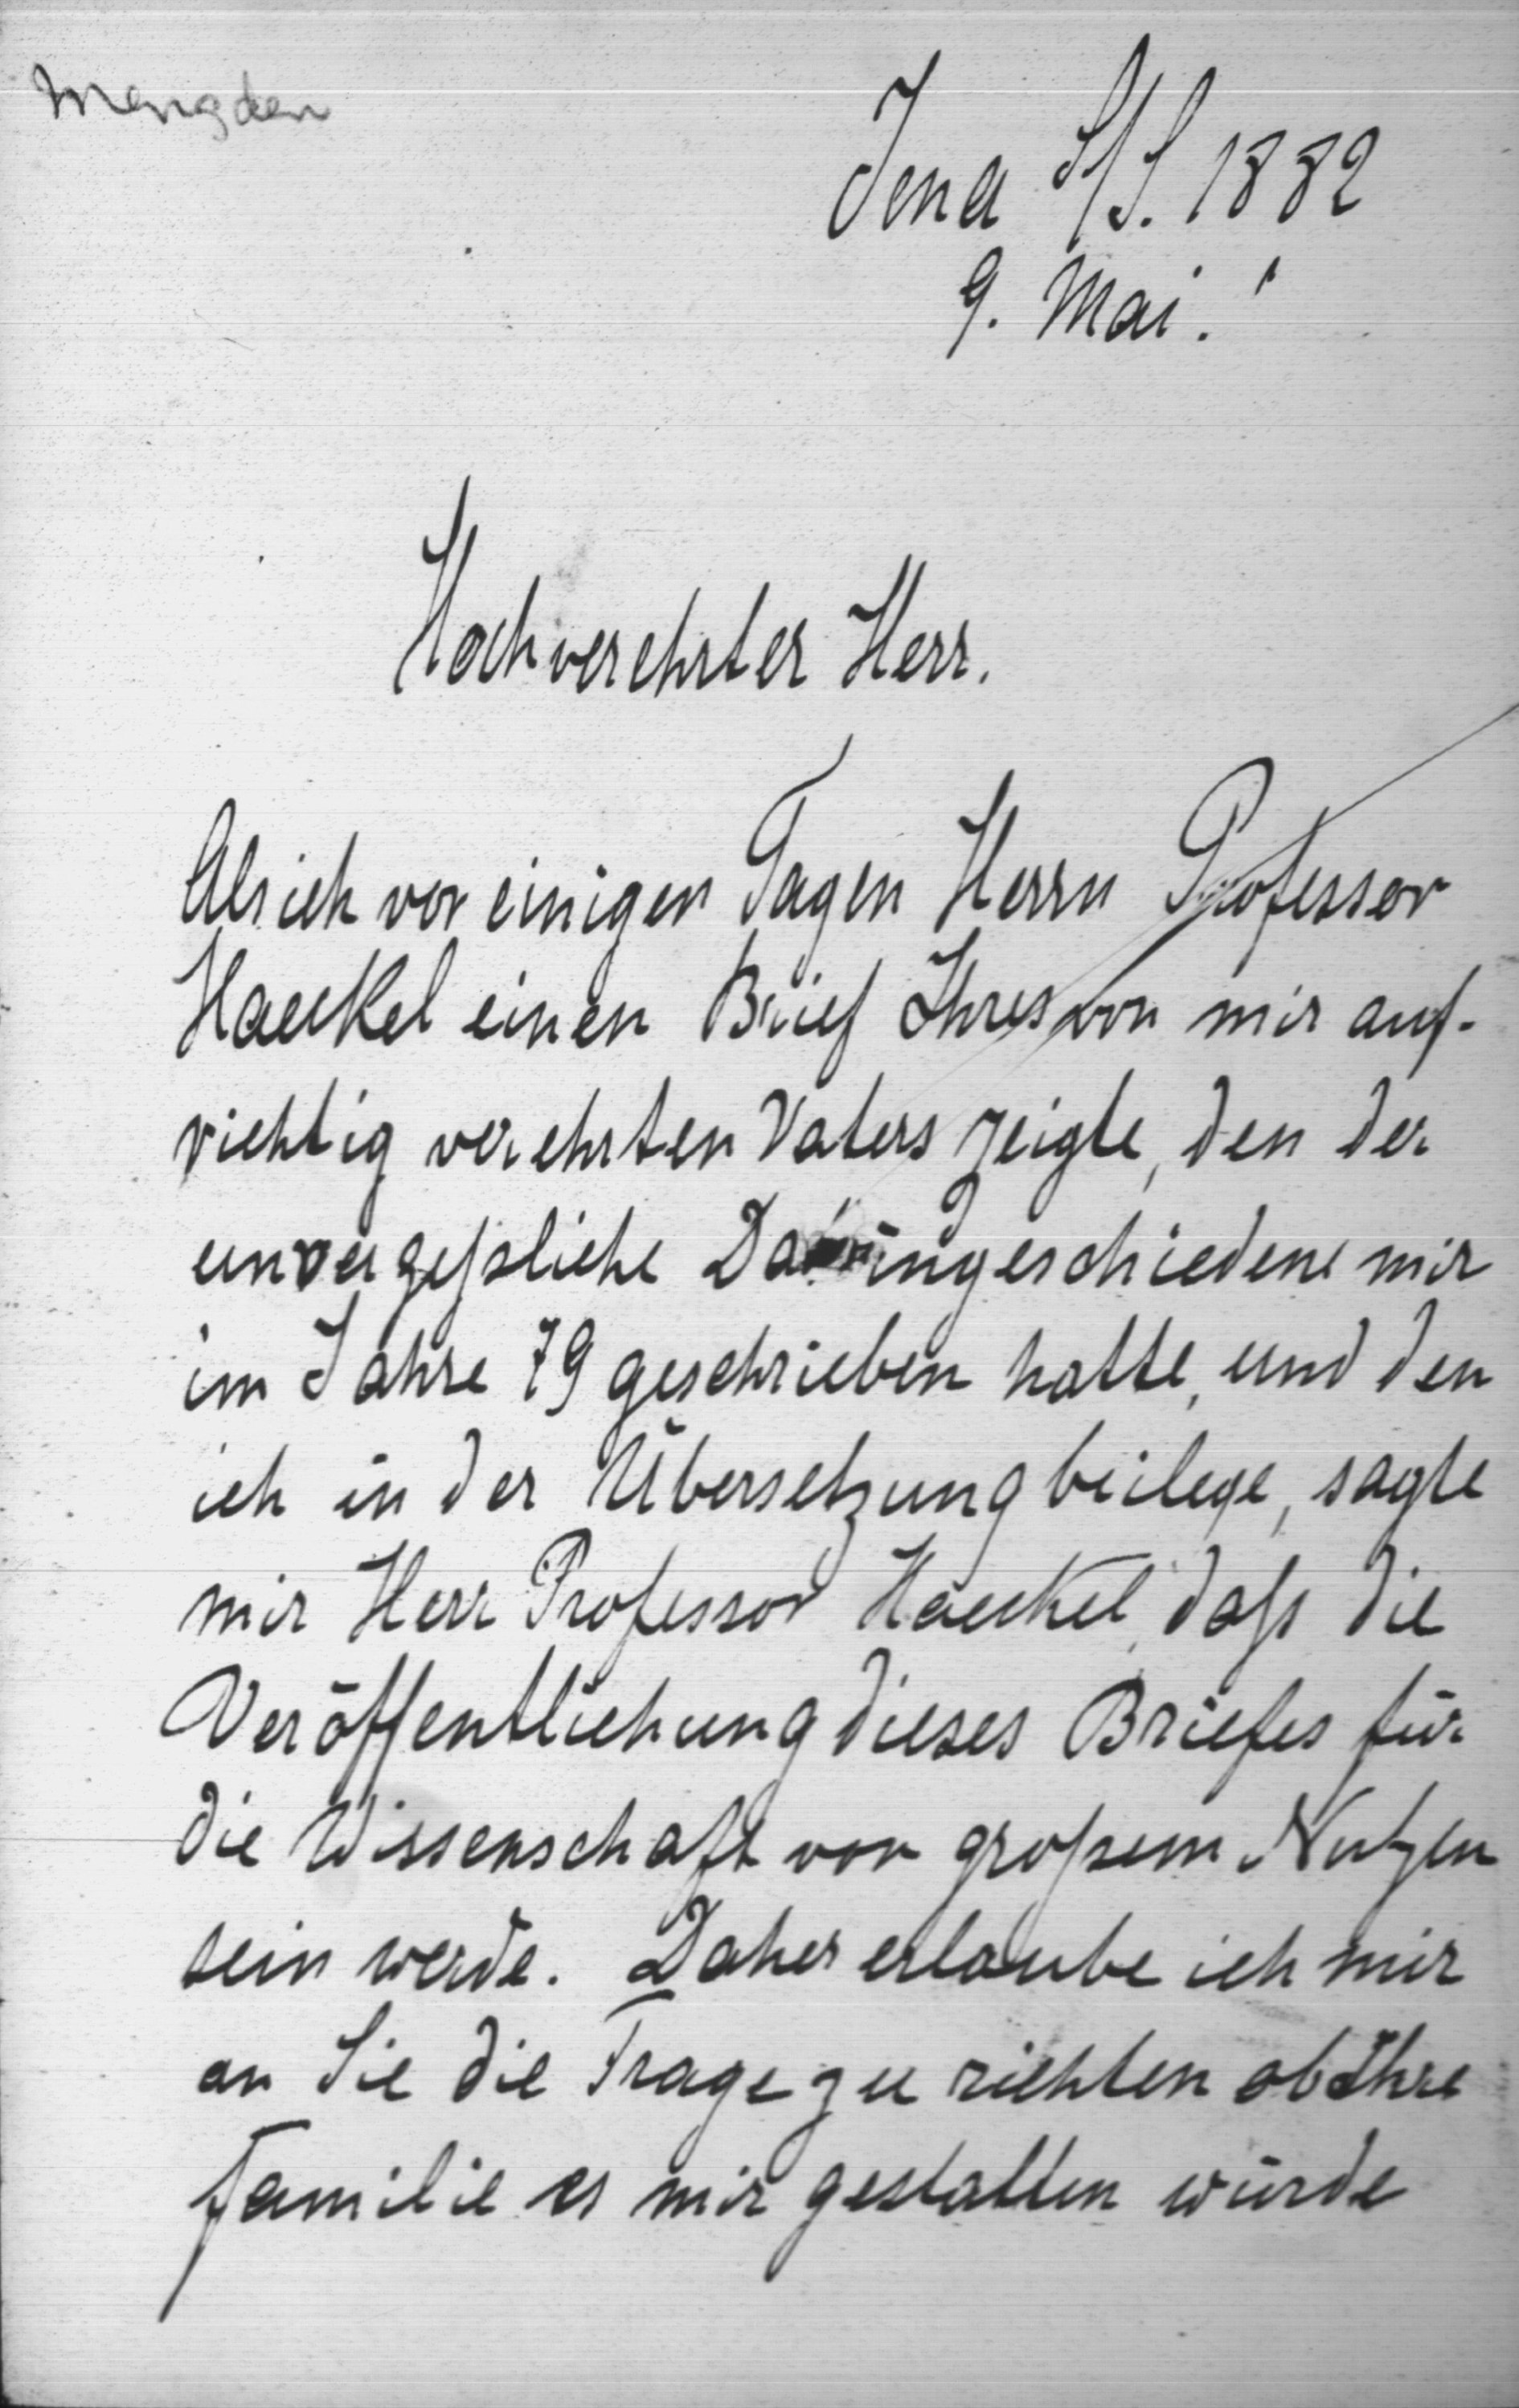 Mengden
Jena S/S. 1882
9. Mai.
Hochverehrter Herr.
Als ich vor einigen Tagen Herrn Professor
Haeckel einen Brief Ihres von mir auf-
richtig verehrten Vaters zeigte, den der
unvergeßliche Dahingeschiedene mir
im Jahre 79 geschrieben hatte, und den
ich in der Übersetzung beilege, sagte
mir Herr Professor Haeckel, daß die
Veröffentlichung dieses Briefes für
die Wissenschaft von großem Nutzen
sein werde. Daher erlaube ich mir
an Sie die Frage zu richten ob Ihre
Familie es mir gestatten würde